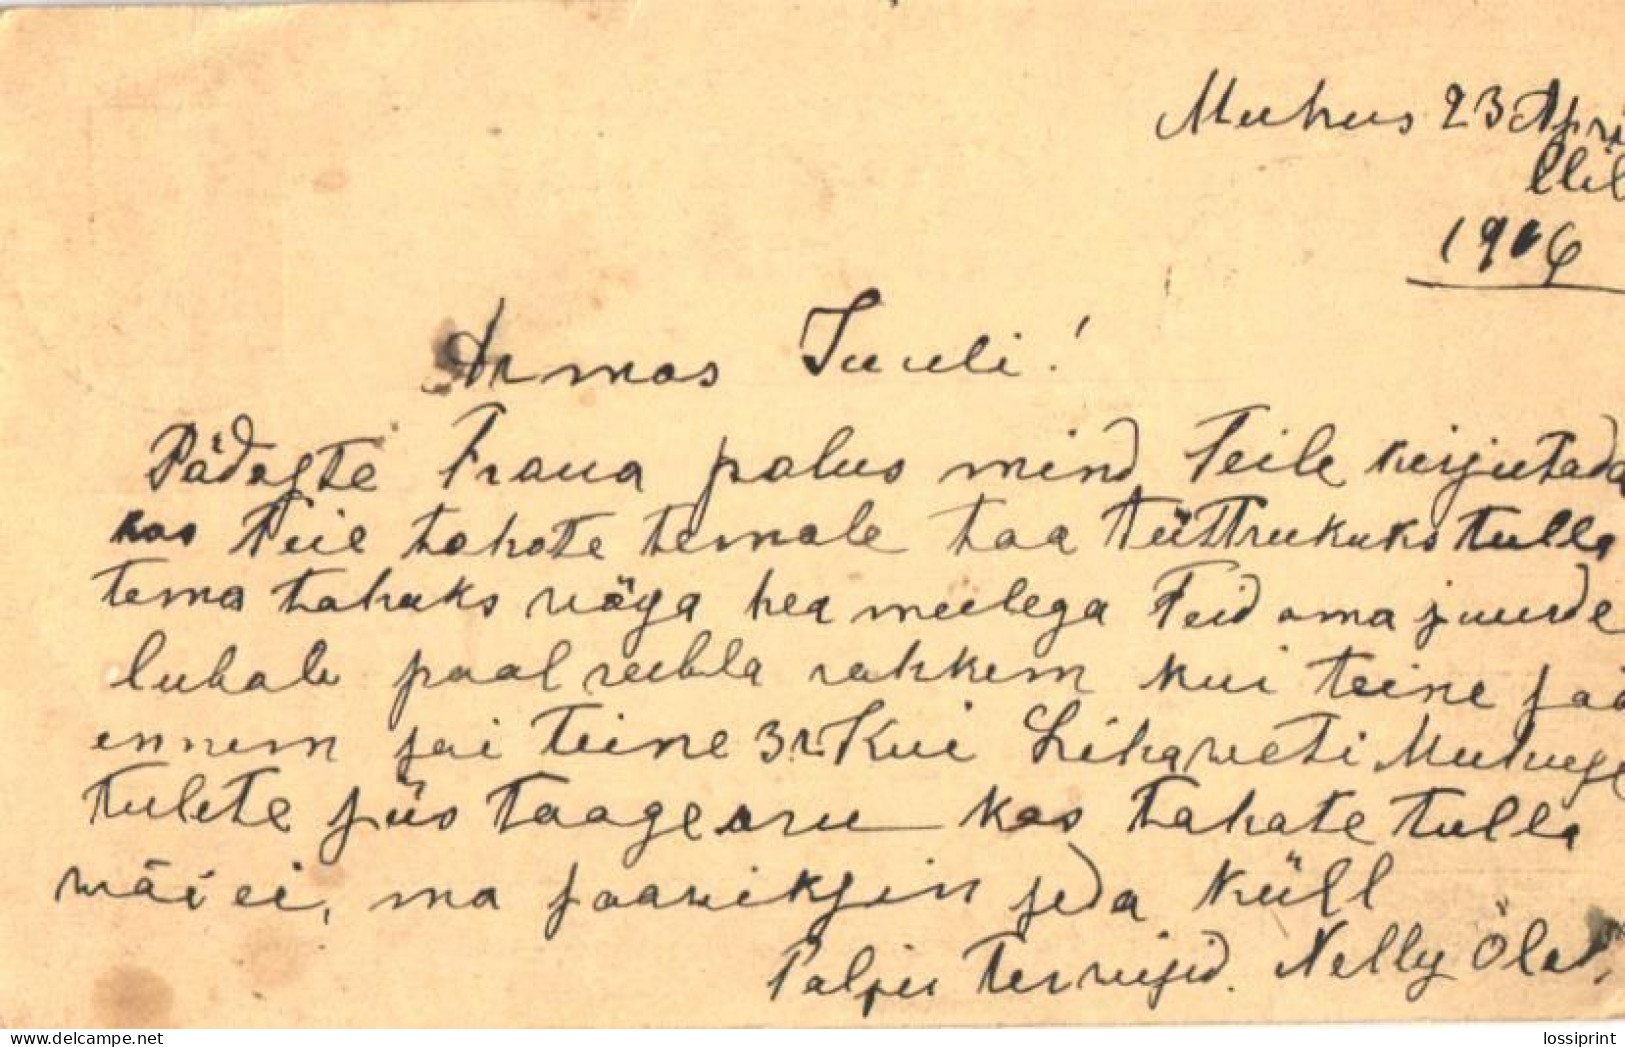 Muhus 23 Apri
llil
1906
Armas Juuli!
Pädaste Fraua palus mind Teile kirjutada
kas Teie tahate temale taa tüttrukuks tulla
tema tahaks wäga hea meelega Teid oma juurde
lubab paal rubla rohkem kui teine saa
ennem sai teine 3r. Kui Lihaweti Muhuge
tulete siis taage aru kas tahate tulla
wäi ei, ma saawiksin seda küll
Palju terwisid. Nelly Öla
lossiprint